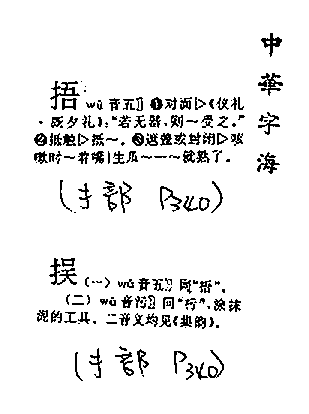 中華字海
捂 wǔ 音五 ❶对面▷《仪礼
·既夕礼》:“若无器,则~受之。”
❷抵触▷抵~。❸遮盖或封闭▷咳
嗽时~着嘴|生瓜~一~就熟了。
(手部 P340)
(一) wǔ 音五 同“捂”。
(二) wū 音污 同“杇”,涂抹
泥的工具。二音义均见《集韵》。
(手部 P340)